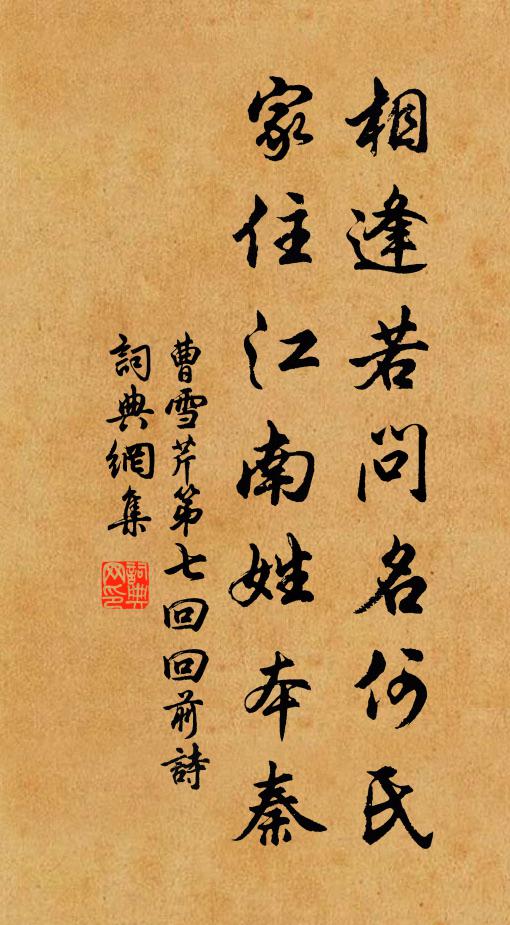 相逢若问名何氏
家住江南姓本秦
曹雪芹第七回回前詩
詞典網集
詞典网印